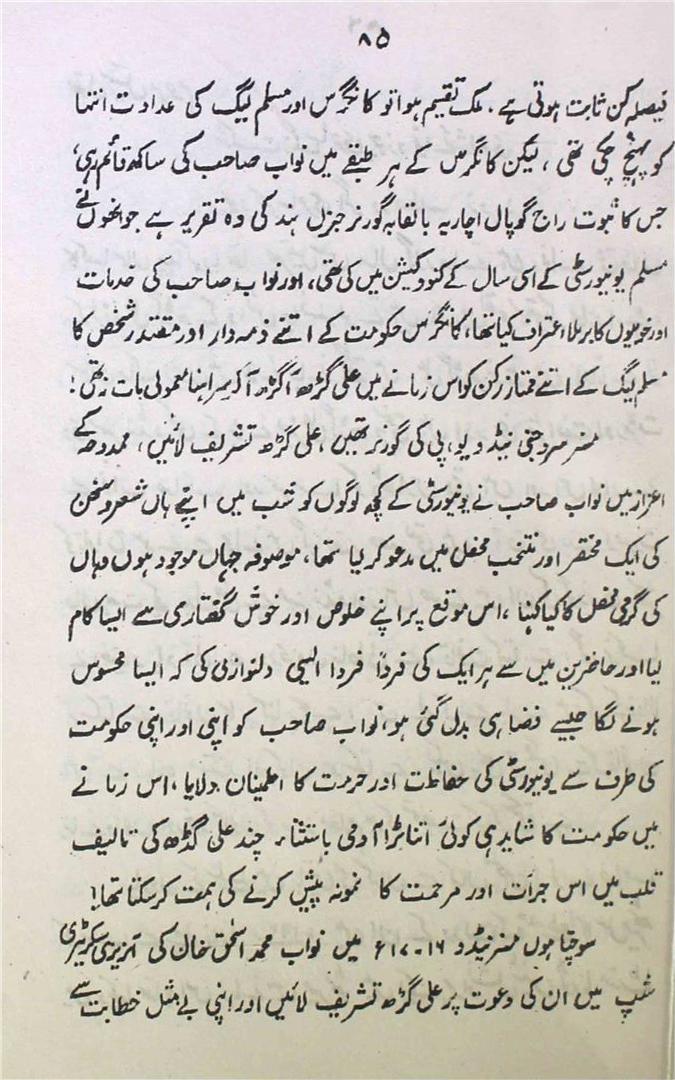 ۸۵
فیصلہ کن ثابت ہوتی ہے۔ ملک تقسیم ہوا تو کانگرس اور مسلم لیگ کی عداوت انتہا
کو پہنچ چکی تھی، لیکن کانگرس کے ہر طبقے میں نواب صاحب کی ساکھ قائم رہی،
جس کا ثبوت راج گوپال اچاریہ بالقابہ گورنر جنرل ہند کی وہ تقریر ہے جو انھوں نے
مسلم یونیورسٹی کے اسی سال کے کنووکیشن میں کی تھی، اور نواب صاحب کی خدمات
اور خوبیوں کا برملا اعتراف کیا تھا، کانگرس حکومت کے اتنے ذمہ دار اور مقتدر شخص کا
مسلم لیگ کے اتنے ممتاز رکن کو اس زمانے میں علی گڑھ آکر سراہنا معمولی بات نہ تھی!
مسز سروجنی نیڈو یو، پی کی گورنر تھیں، علی گڑھ تشریف لائیں، ممدوحہ کے
اعزاز میں نواب صاحب نے یونیورسٹی کے کچھ لوگوں کو شب میں اپنے ہاں شعر و سخن
کی ایک مختصر اور منتخب محفل میں مدعو کر لیا تھا، موصوفہ جہاں موجود ہوں وہاں
کی گرمی محفل کا کیا کہنا، اس موقع پر اپنے خلوص اور خوش گفتاری سے ایسا کام
لیا اور حاضرین میں سے ہر ایک کی فرداً فرداً ایسی دلنوازی کی کہ ایسا محسوس
ہونے لگا جیسے فضا ہی بدل گئی ہو، نواب صاحب کو اپنی اور اپنی حکومت
کی طرف سے یونیورسٹی کی حفاظت اور حرمت کا اطمینان دلایا، اس زمانے
میں حکومت کا شاید ہی کوئی اتنا بڑا آدمی باستثناء چند علی گڈھ کی تالیف
قلب میں اس جرأت اور مرحمت کا نمونہ پیش کرنے کی ہمت کر سکتا تھا!
سوچتا ہوں مسز نیڈو ۱۶-۶۱۷ میں نواب محمد اسحٰق خان کی آنریری سکرٹیری
شپ میں ان کی دعوت پر علی گڑھ تشریف لائیں اور اپنی بے مثل خطابت سے